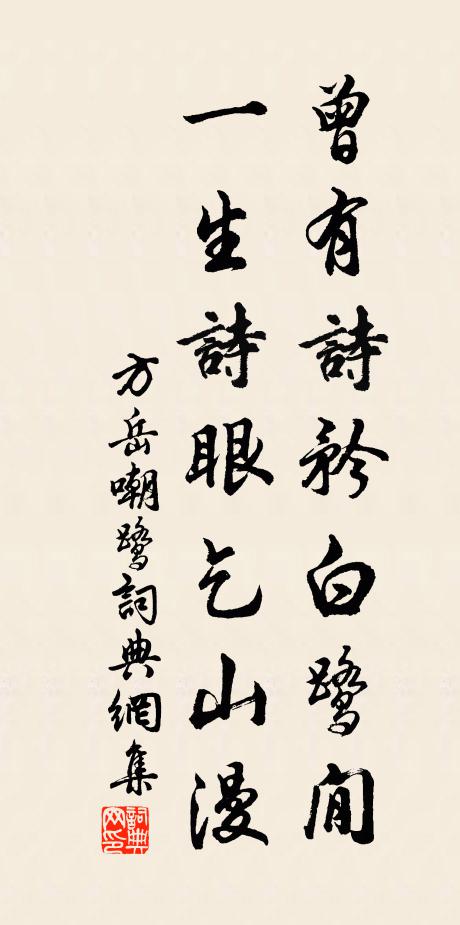 曾有詩矜白鷺閒
一生詩眼乞山漫
方岳嘲鷺詞典網集
詞典网印